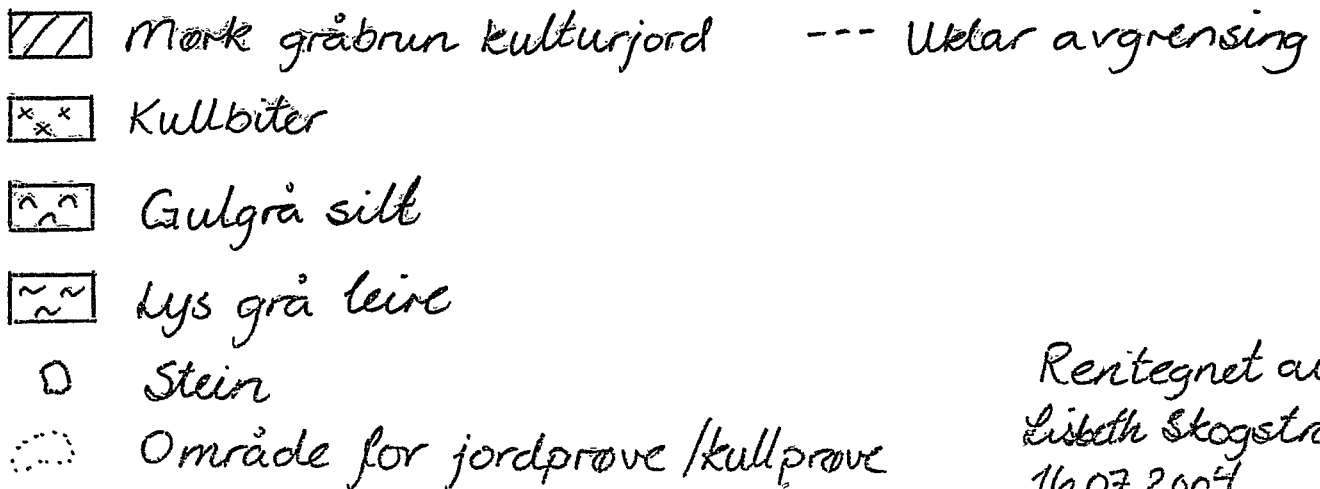 Mørk gråbrun kulturjord --- Uklar avgrensing
Kullbiter
Gulgrå silt
Lys grå leire
Stein
Område for jordprøve/kullprøve
Rentegnet av
Lisbeth Skogstra
16.07.2004